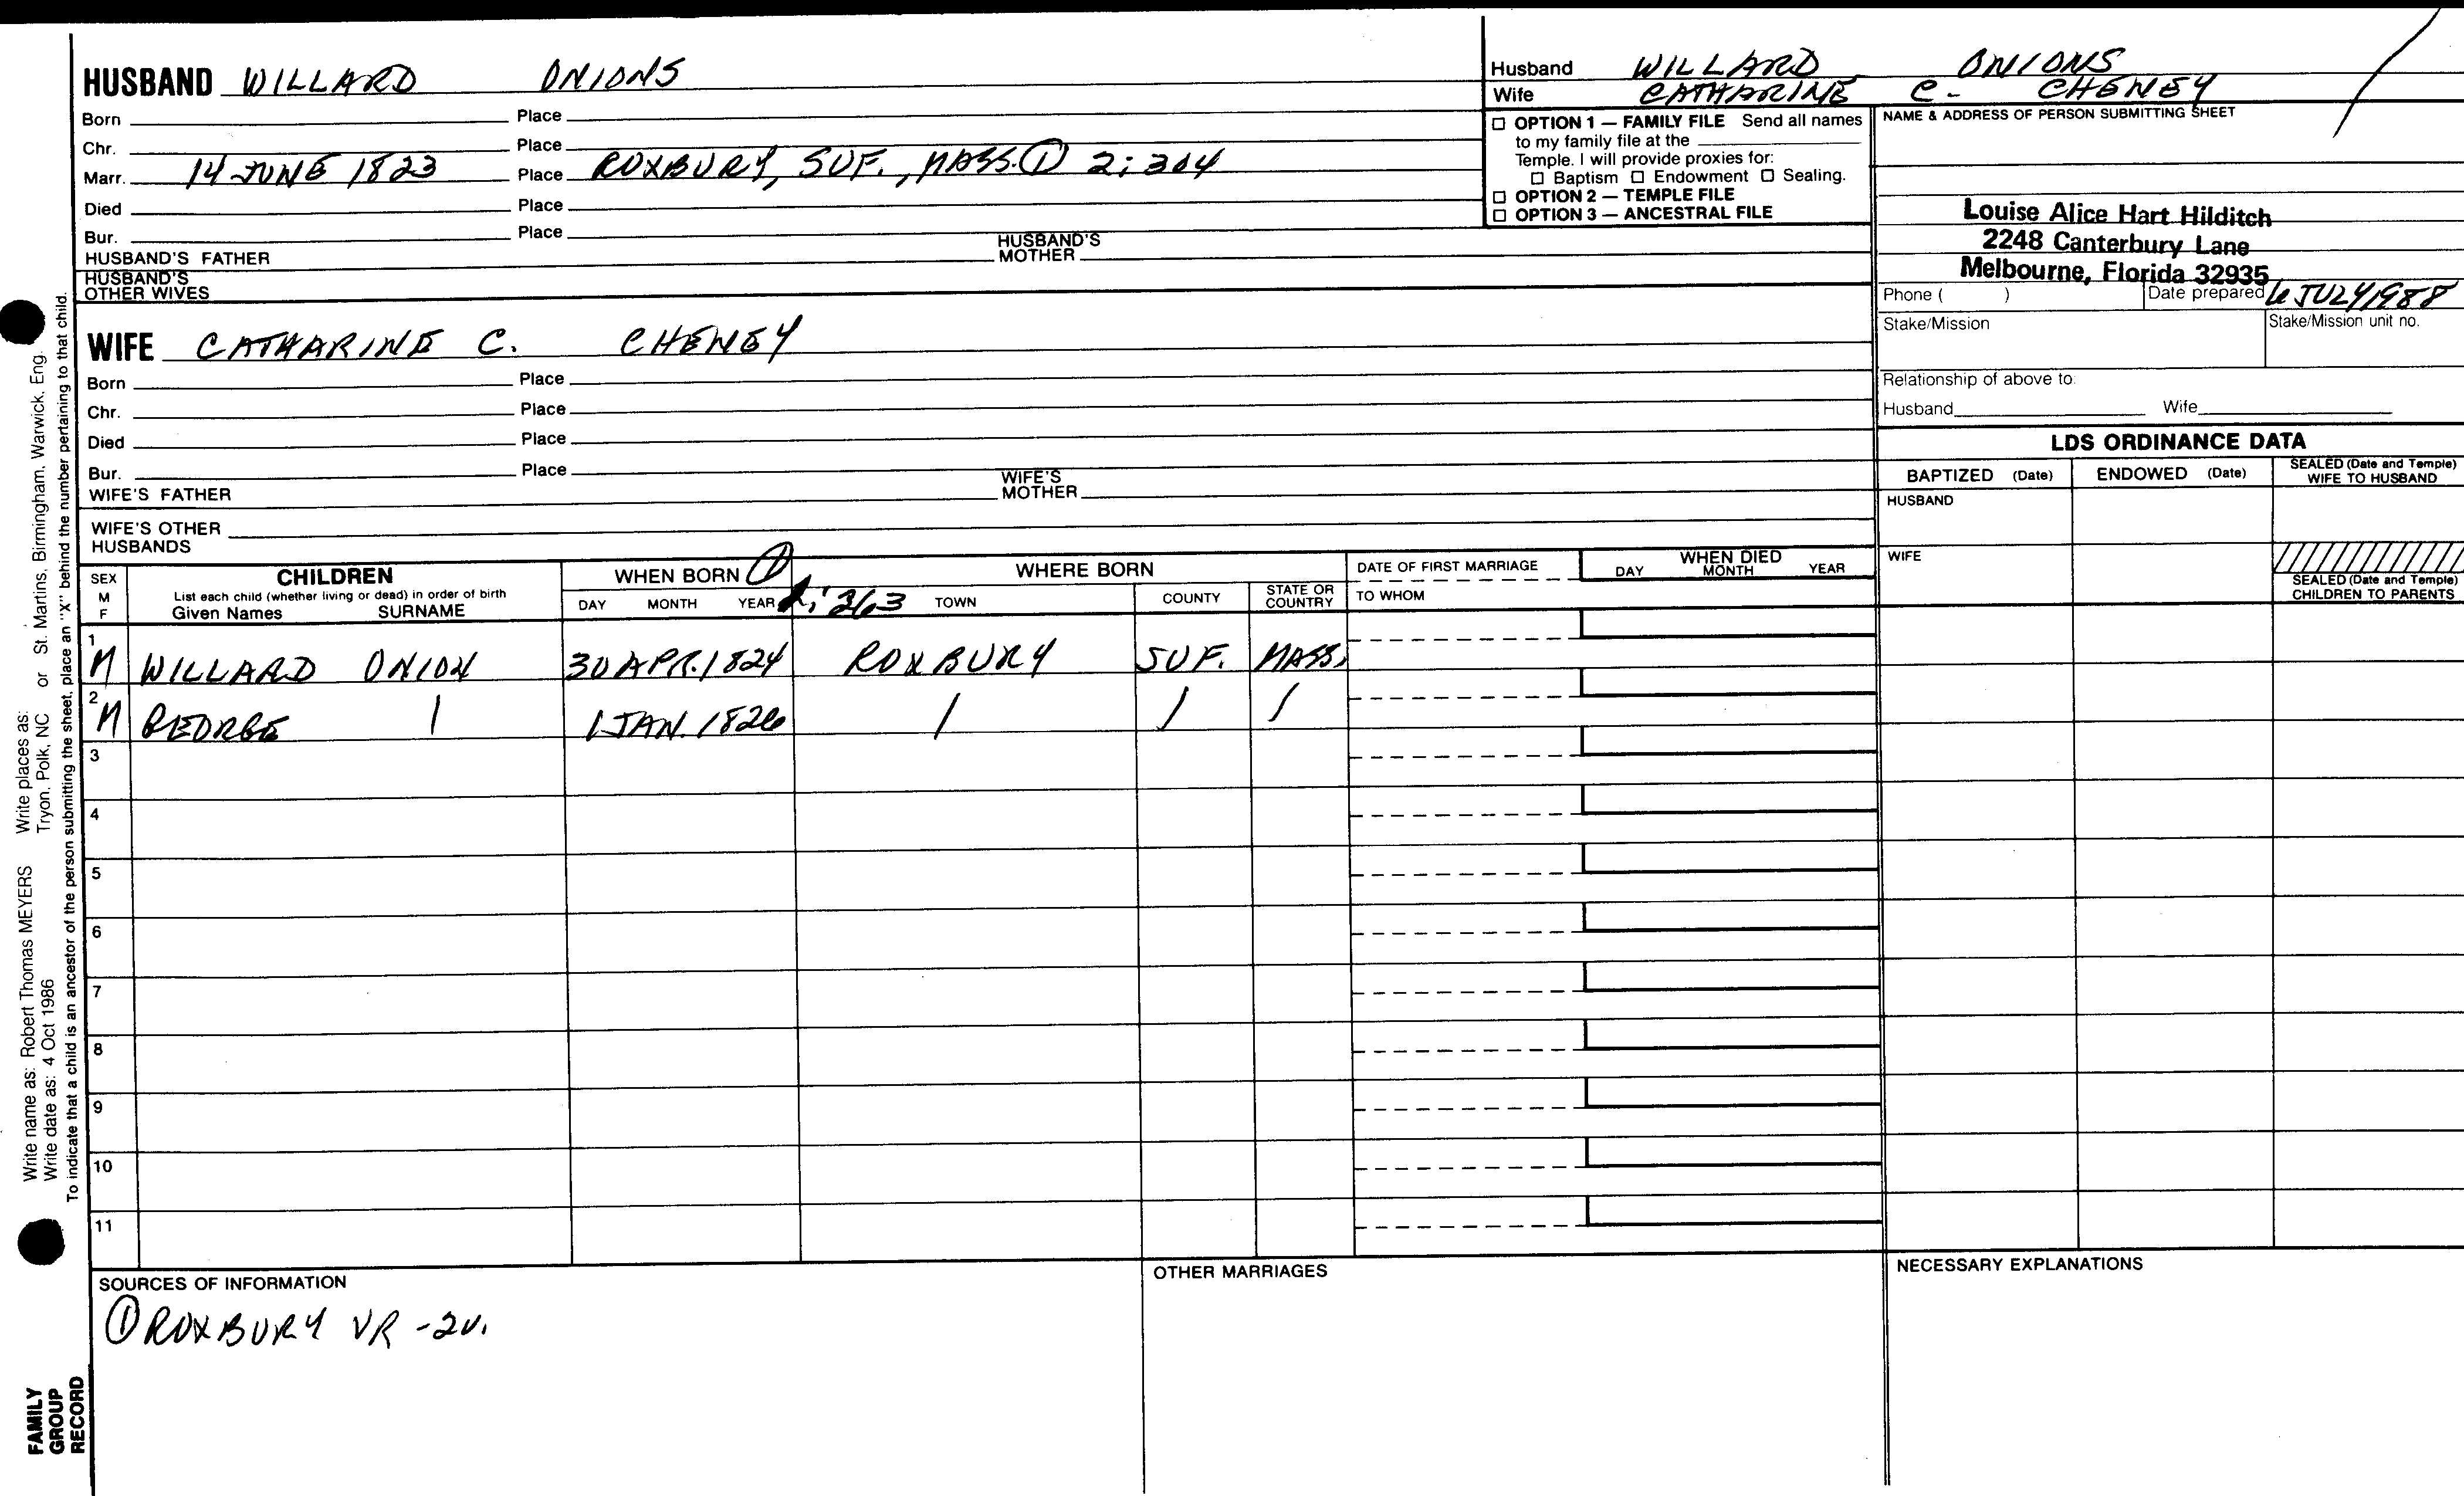 HUSBAND WILLARD ONIONS
Born Place
Chr. Place
Marr. 14 JUNE 1823 Place ROXBURY, SUF., MASS. ① 2:304
Died Place
Bur. Place
HUSBAND'S FATHER HUSBAND'S MOTHER
HUSBAND'S OTHER WIVES
Husband WILLARD ONIONS
Wife CATHARINE C. CHENEY
☐ OPTION 1 — FAMILY FILE Send all names
to my family file at the
Temple. I will provide proxies for:
☐ Baptism ☐ Endowment ☐ Sealing.
☐ OPTION 2 — TEMPLE FILE
☐ OPTION 3 — ANCESTRAL FILE
NAME & ADDRESS OF PERSON SUBMITTING SHEET
Louise Alice Hart Hilditch
2248 Canterbury Lane
Melbourne, Florida 32935
Phone ( ) Date prepared 6 JULY 1988
Stake/Mission Stake/Mission unit no.
Relationship of above to:
Husband Wife
WIFE CATHARINE C. CHENEY
Born Place
Chr. Place
Died Place
Bur. Place
WIFE'S FATHER WIFE'S MOTHER
WIFE'S OTHER HUSBANDS
LDS ORDINANCE DATA
BAPTIZED (Date) ENDOWED (Date) SEALED (Date and Temple) WIFE TO HUSBAND
HUSBAND
WIFE
SEALED (Date and Temple) CHILDREN TO PARENTS
SEX M F
CHILDREN
List each child (whether living or dead) in order of birth
Given Names SURNAME
WHEN BORN ① 2:263
DAY MONTH YEAR
WHERE BORN
TOWN COUNTY STATE OR COUNTRY
DATE OF FIRST MARRIAGE
TO WHOM
WHEN DIED
DAY MONTH YEAR
1 M WILLARD ONION 30 APR. 1824 ROXBURY SUF. MASS.
2 M GEORGE | 1 JAN. 1826 / / /
3
4
5
6
7
8
9
10
11
SOURCES OF INFORMATION
① ROXBURY VR - 2v.
OTHER MARRIAGES
NECESSARY EXPLANATIONS
Write name as: Robert Thomas MEYERS Write places as:
Write date as: 4 Oct 1986 Tryon, Polk, NC or St. Martins, Birmingham, Warwick, Eng.
To indicate that a child is an ancestor of the person submitting the sheet, place an "X" behind the number pertaining to that child.
FAMILY
GROUP
RECORD